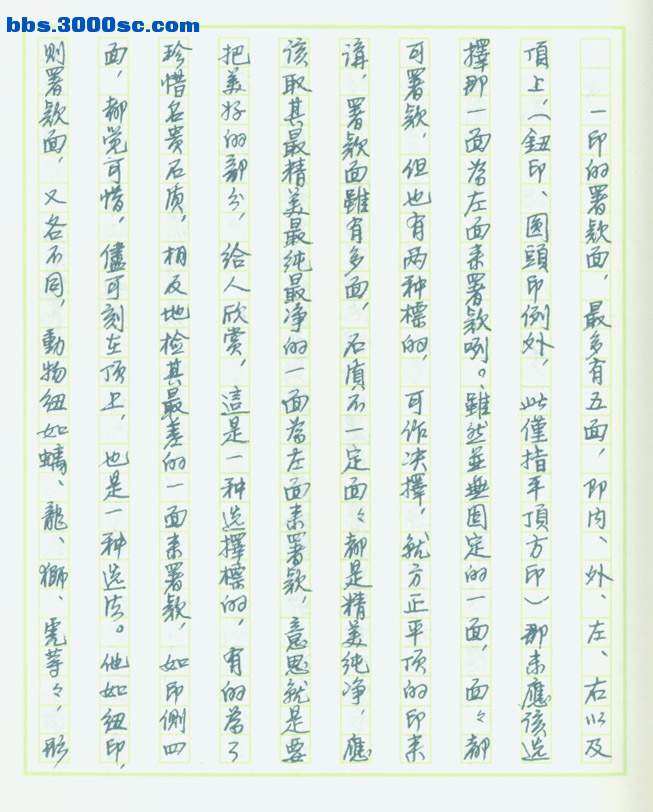 bbs.3000sc.com
一印的署款面，最多有五面，即内、外、左、右以及
頂上，（鈕印、圆頭印例外，此僅指平頂方印）那末應该选
擇那一面當左面来署款咧。雖然並無固定的一面，面々都
可署款，但也有两种標的，可作决擇，就方正平顶的印来
講，署款面雖有多面，石質不一定面々都是精美纯净，應
该取其最精美最纯最净的一面當左面来署款，意思就是要
把美好的部分，给人欣赏，這是一种选擇標的，有的為了
珍惜名贵石质，相反地检其最差的一面来署款，如印侧四
面，都觉可惜，儘可刻在顶上，也是一种选法。他如纽印，
则署款面，又各不同，動物纽如螭、龍、獅、虎等々，形